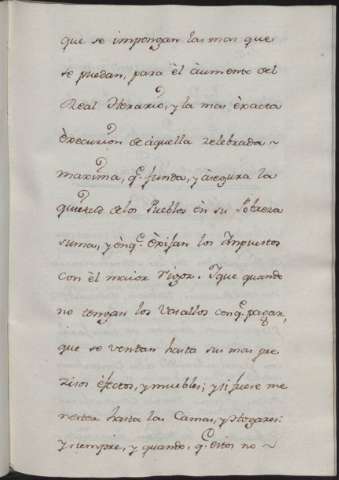 que se impongan las mas que
se puedan, para èl àumento del
Real Herario, y la mas èxacta
èxecucion de àquella zelebrada
maxima, q.e funda, y àsegura la
quietud de los Pueblos èn su Pobreza
suma, y ènq.e èxijan los Impuestos
con èl maior rigor. Y que quando
no tengan los Vasallos con q.e pagar,
que se vendan hasta sus mas pre
zisos èfectos, y muebles; y si fuere me
nester hasta las Camas, y Hogares:
y siempre, y quando, q.e èstos no